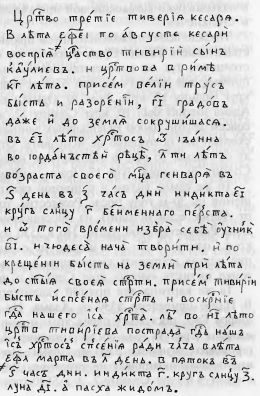 Црⷭ҇тво трє́тїє тивєрїѧ кєсарѧ.
В лѣта ҂єфєі по а҆ѵгѹстє кєсари
воспрїѧ̀ црⷭ҇аство тивирїй сынъ
каѹлиєвъ. и црⷭ҇твова в римѣ
кг҃ лѣта. присє́м вєлїи трѹсъ
бысть и разорє́нїи, гі҃ градовъ
дажє и҆ до зємлѧ сокрѹши́шасѧ.
въ єі҃ лѣто хрⷭ҇тосъ ѿ іѡанна
во іѡрда́нъстѣй рѣцѣ̀, л҃ ти лѣтъ
во́зраста своєгѡ̀ мцⷭ҇а гєнварѧ въ
ѕ҃ дєнь въ з҃ часъ днѝ индикта єі҃
крѹгъ сл҃нцѹ г҃ бєймєннаго пєрста.
и ѿ тогѡ врємєни избра̀ сєбѣ̀ ѹ҆чникъ
ві҃. и чюдєса̀ нача̀ твори́ти. и҆ по
крєщє́нїи бысть на зємлѝ трѝ лѣта
до ст҃ы́ѧ своєѧ̀ стрⷭ҇ти. присє́мъ тивирїи
бы́сть и҆сп҃сє́наѧ стрⷭ҇ть и воскрⷭ҇нїє
гдⷭ҇а нашєго іс҃а хрⷭ҇та̀. лѣ во ні҃ лѣто
црⷭ҇тв тивирїєва пострада̀ гдⷭ҇ь нашъ
іс҃ъ хрⷭ҇тосъ сп҃сє́нїѧ ради в лѣта
҂єфл҃ марта въ л҃ дєнь. в пѧтокъ въ
ѕ҃ часъ дни. индикта г҃. крѹгъ сл҃нцѹ з҃.
лѹна̀ ді҃. а҆ пасха жидо́м.